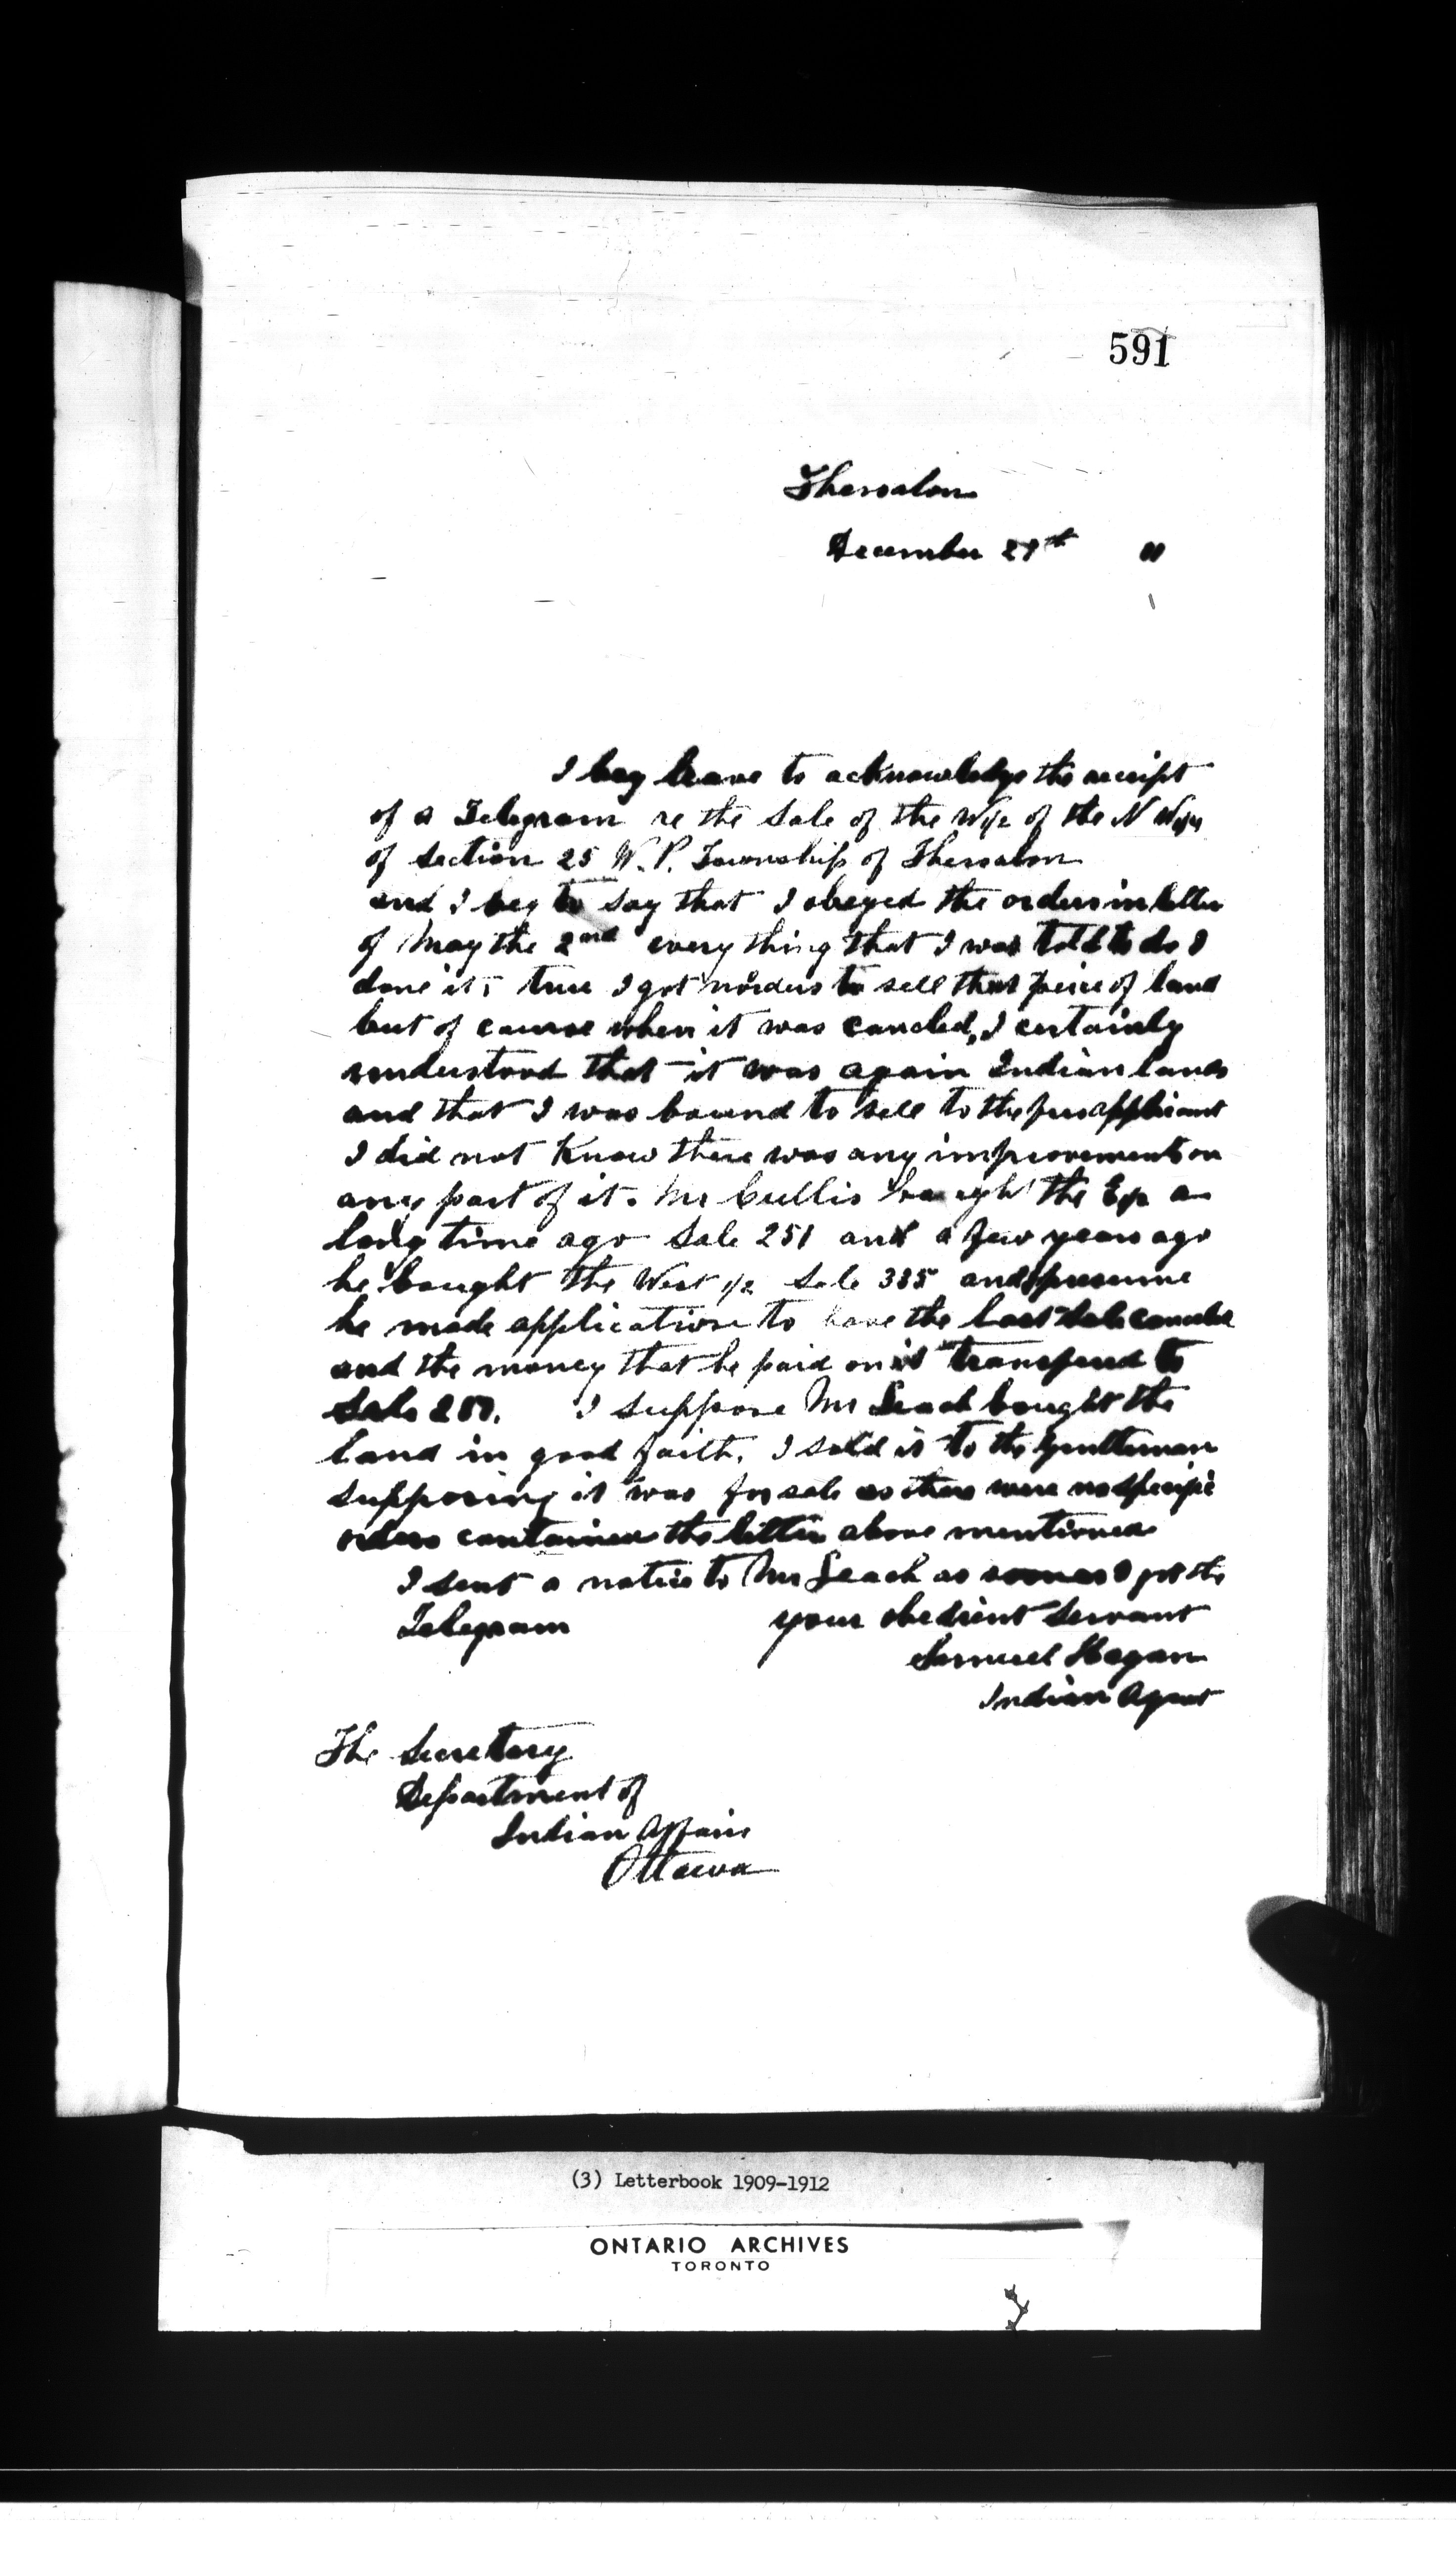 591
Thessalon
December 27th 11
I beg leave to acknowledge the receipt
of a Telegram re the Sale of the W 1/2 of the N W 1/4
of section 25 W. P. Township of Thessalon
and I beg to say that I obeyed the orders in letter
of May the 2nd every thing that I was told to do I
done it, true I got no orders to sell that peice of land
but of course when it was cancled, I certainly
understood that it was again Indian lands
and that I was bound to sell to the applicant
I did not Know there was any improvements on
any part of it. Mr Cullis bought the E 1/2 a
long time ago Sale 251 and a few years ago
he bought the West 1/2 Sale 335 and presume
he made application to have the last Sale
and the money that he paid on it to
Sale I suppose Mr Leach bought the
land in good faith. I sold it to the Gentleman
supposing it was for sale as there were no specific
orders contained the letter above mentioned
I sent a notice to Mr Leach as soon as I got the
Telegram your obedient Servant
Samuel Hagan
Indian Agent
The Secretary
Department of
Indian Affairs
Ottawa
(3) Letterbook 1909-1912
ONTARIO ARCHIVES
TORONTO